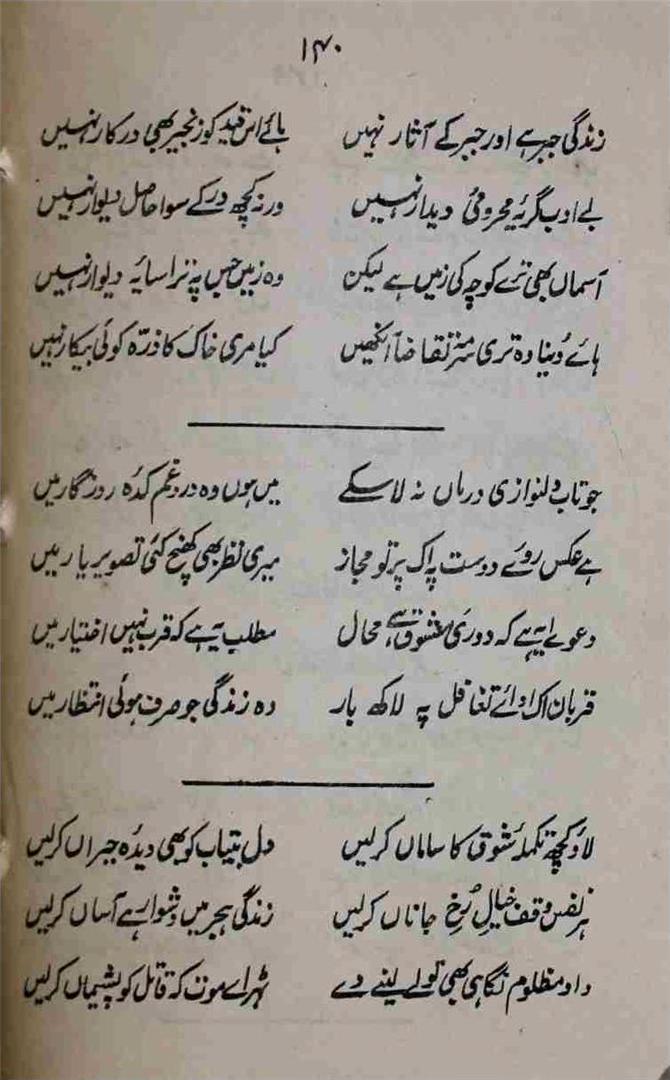 ۱۴۰
زندگی جبر ہے اور جبر کے آثار نہیں ہائے اس قید کو زنجیر بھی درکار نہیں
بے ادب گریۂ محرومیٔ دیدار نہیں ورنہ کچھ در کے سوا حاصل دیوار نہیں
آسماں بھی ترے کوچہ کی زمیں ہے لیکن وہ زمیں جس پہ ترا سایۂ دیوار نہیں
ہائے دنیا وہ تری سرمہ تقاضا آنکھیں کیا مری خاک کا ذرّہ کوئی بیکار نہیں
جو تاب دلنوازی درماں نہ لا سکے میں ہوں وہ درد غم کدۂ روزگار میں
ہے عکس روئے دوست پہ اک پرتو مجاز میری نظر بھی کھنچ گئی تصویر یار میں
دعوے یہ ہے کہ دوریٔ معشوق ہے محال مطلب یہ ہے کہ قرب نہیں اختیار میں
قربان اک ادائے تغافل پہ لاکھ بار وہ زندگی جو صرف ہوئی انتظار میں
لاؤ کچھ تکملۂ شوق کا ساماں کر لیں دل بیتاب کو بھی دیدۂ حیراں کر لیں
ہر نفس وقف خیالِ رُخِ جاناں کر لیں زندگی ہجر میں دشوار ہے آساں کر لیں
داد مظلوم نگاہی بھی تو لے لینے دے ٹہر اے موت کہ قاتل کو پشیماں کر لیں